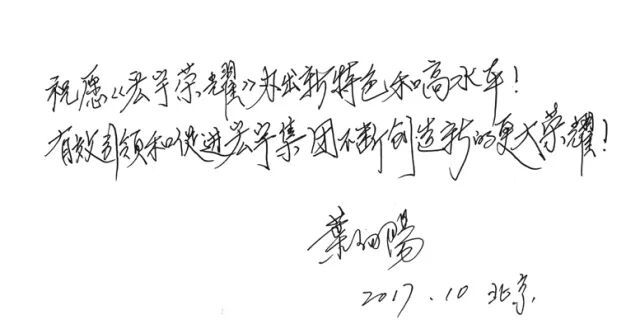 祝愿《宏宇荣耀》办出新特色和高水平！
有效引领和促进宏宇集团不断创造新的更大荣耀！
葉向陽
2017.10 北京